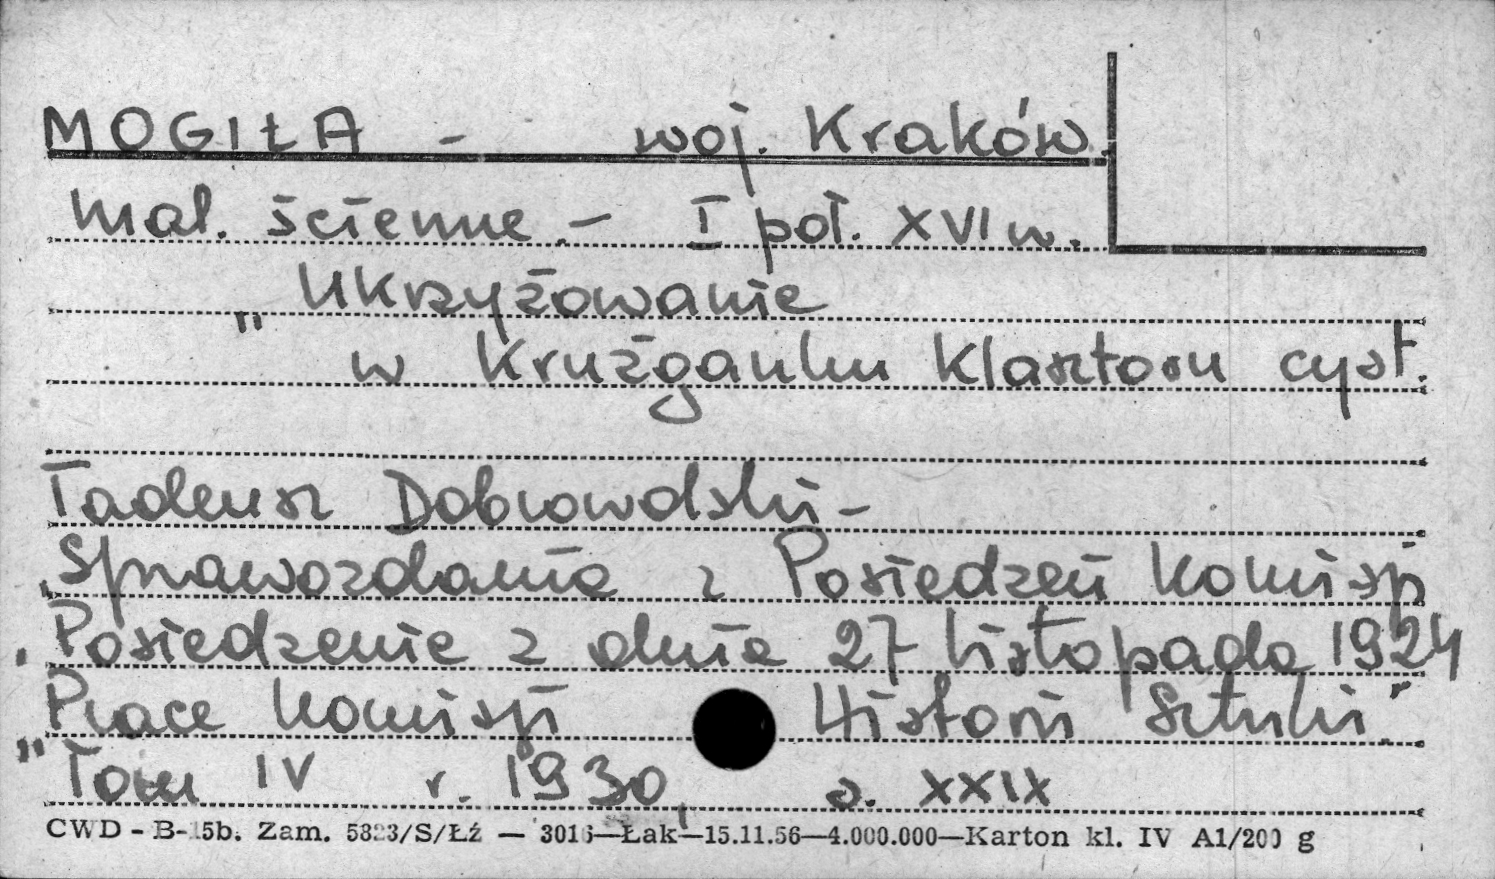 MOGIŁA - woj. Kraków.
mal. ścienne.- I poł. XVI w.
"Ukrzyżowanie
w Krużganku Klasztoru cyst.
Tadeusz Dobrowolski-
"Sprawozdania z Posiedzeń Komisji
"Posiedzenie z dnia 27 listopada 1924 r
"Prace Komisji Historii Sztuki".
Tom IV r. 1930, s. XXIX
CWD - B-15b. Zam. 5823/S/Łź — 3016—Łak—15.11.56—4.000.000—Karton kl. IV A1/200 g